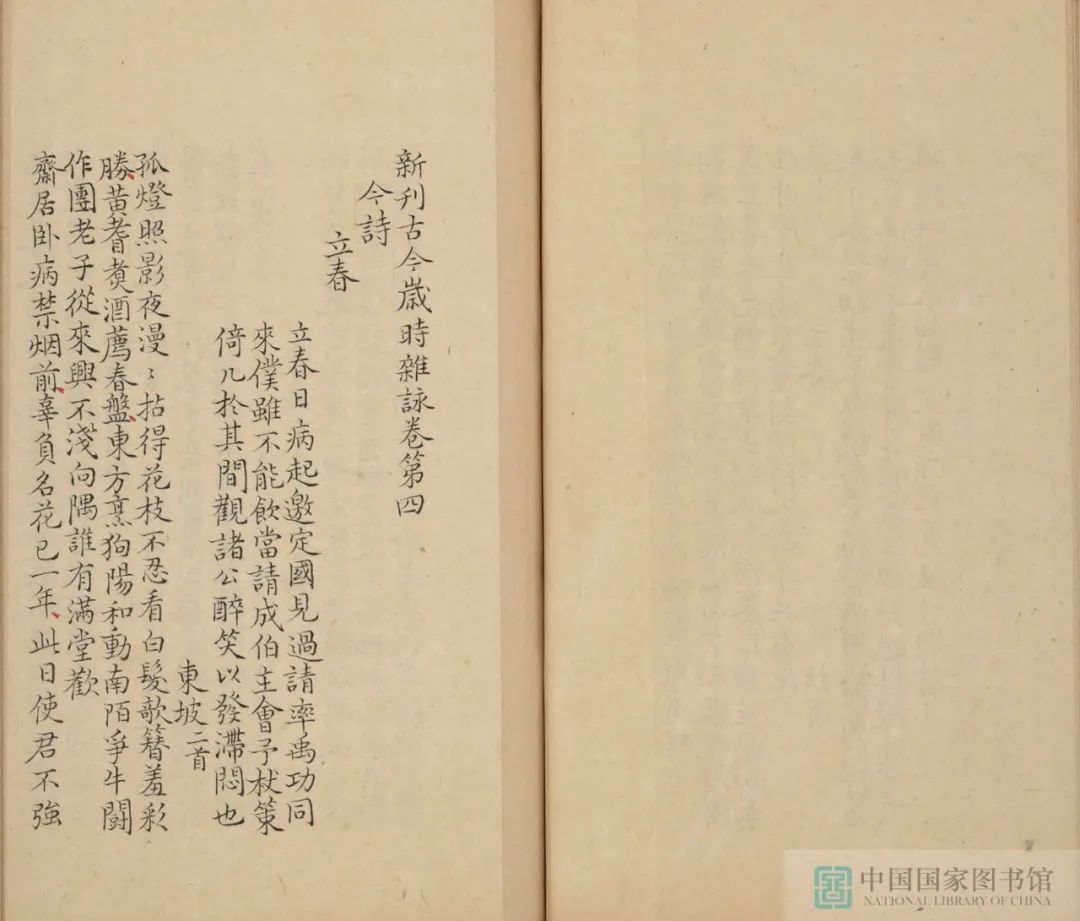 新刋古今歲時雜詠卷第四
今詩
立春
立春日病起邀定國見過請率禹功同
來僕雖不能飲當請成伯主會予杖策
倚几於其間觀諸公醉笑以發滯悶也
東坡二首
孤燈照影夜漫〻拈得花枝不忍看白髮歌簪羞彩
勝黃耆煑酒薦春盤東方烹狗陽和動南陌爭牛鬪
作團老子從來興不淺向隅誰有滿堂歡
齋居卧病禁烟前辜負名花已一年此日使君不強
中国国家图书馆
NATIONAL LIBRARY OF CHINA